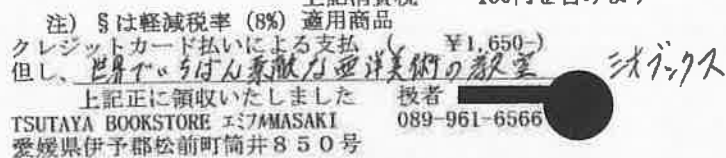 上記消費税 150円を含みます
注) §は軽減税率 (8%) 適用商品
クレジットカード払いによる支払 ( ¥1,650-)
但し、世界でいちばん素敵な西洋美術の教室 三才ブックス
上記正に領収いたしました 扱者
TSUTAYA BOOKSTORE エミフルMASAKI 089-961-6566
愛媛県伊予郡松前町筒井850号